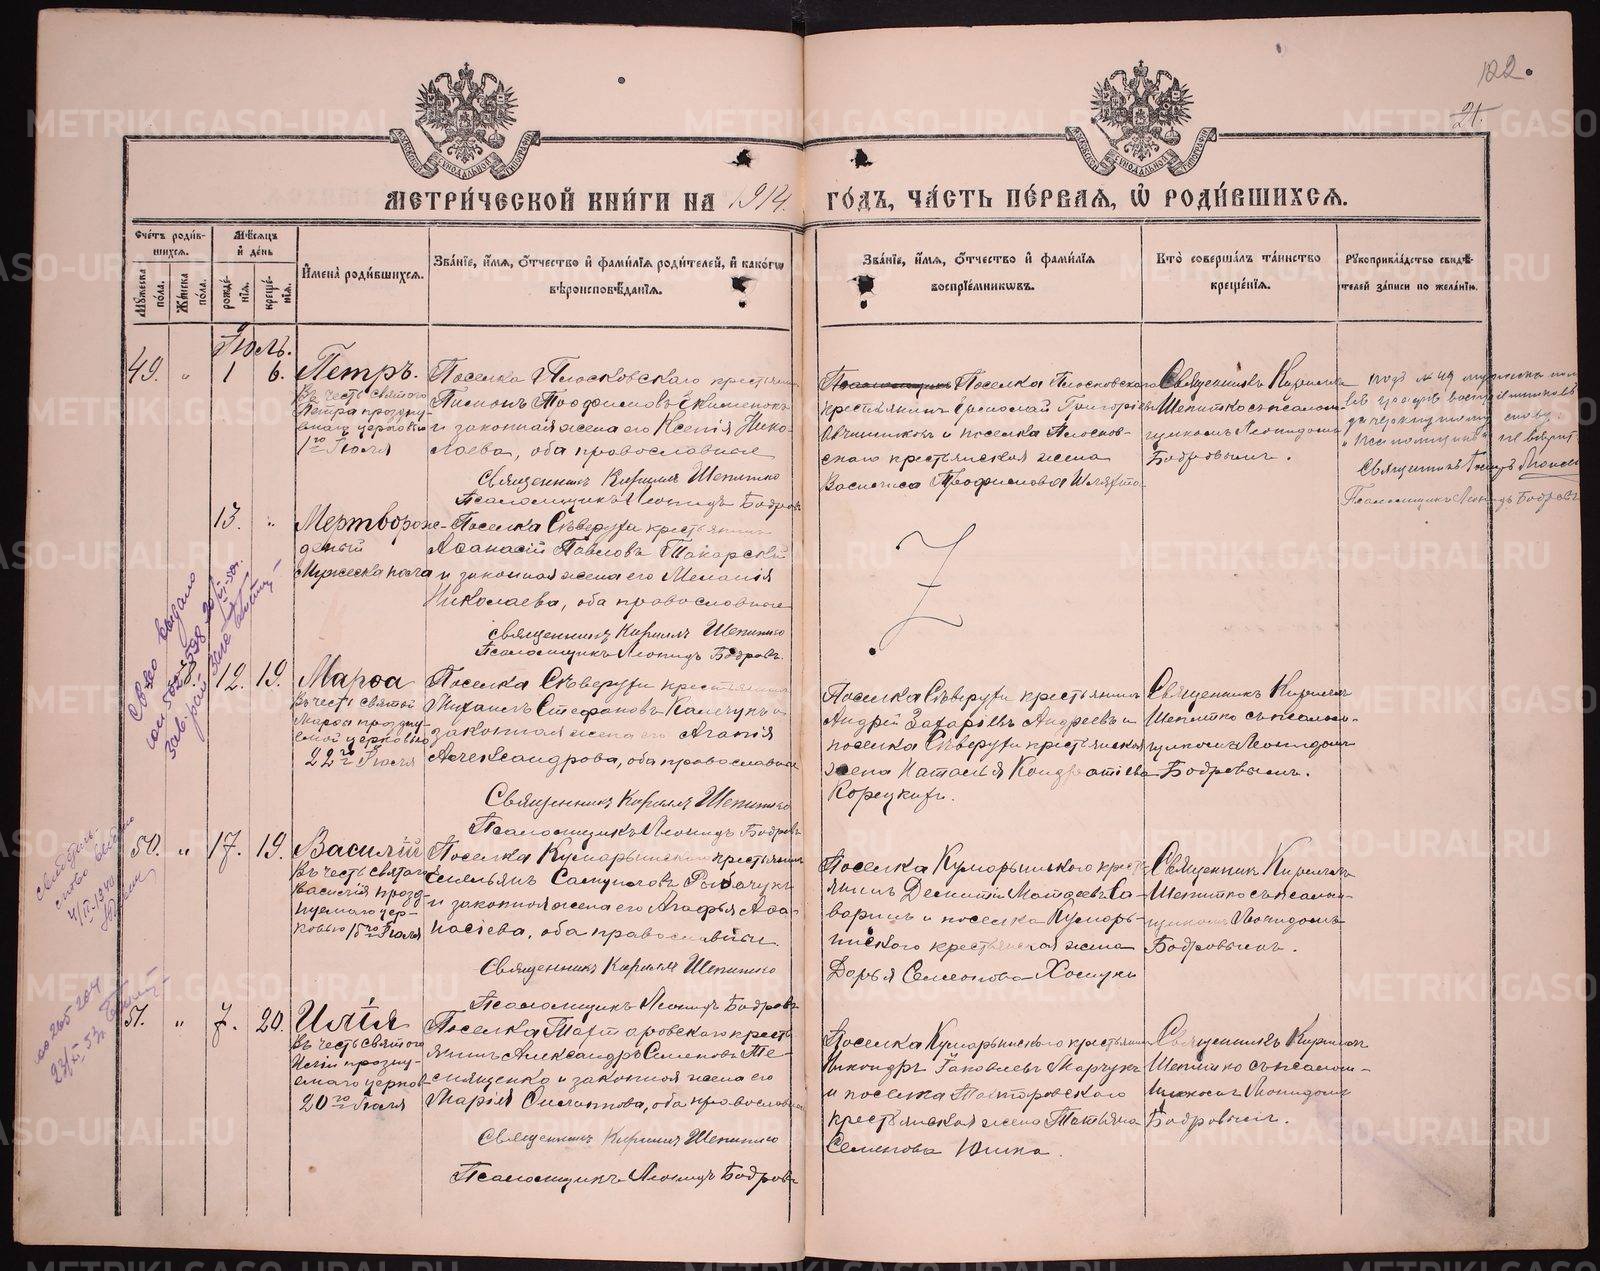 122.
21.
МЕТРИ́ЧЕСКОЙ КНИ́ГИ НА 1914 ГО́ДЪ, ЧА́СТЬ ПЕ́РВАЯ, Ѡ РОДИ́ВШИХСЯ.
Сче́тъ роди́в-
шихся.
Мѣ́сяцъ
и де́нь
Му́жеска по́ла.
Же́нска по́ла.
рожде́нія.
креще́нія.
И́мена̀ роди́вшихся.
Зва́ніе, и́мя, о́тчество и фами́лія роди́телей, и како́гѡ
вѣроисповѣ́данія.
Зва́ніе, и́мя, о́тчество и фами́лія
воспріе́мникѡвъ.
Кто̀ соверша́лъ та́инство
креще́нія.
Рукоприкла́дство свидѣ́-
телей за́писи по жела́нію.
Іюль.
49. " 1 6.
Петръ.
Въ честь святого
Петра праздну-
емаго церковію
1го Іюля
Поселка Плосковскаго крестьянинъ
и законная жена его Ксенія Нико-
лаева, оба православные
Священникъ Кириллъ Шепитко
Псаломщикъ Леонидъ Бодровъ
Поселка Плосковскаго
крестьянинъ Ермолай Григорьевъ
и поселка Плосков-
скаго крестьянская жена
Василиса Трофимова
Священникъ Кириллъ
Шепитко съ псалом-
щикомъ Леонидомъ
Бодровымъ.
подъ № 49 мужеска пола
въ графѣ воспріемниковъ
зачеркнутому слову
"Псаломщикъ" не вѣрить
Священникъ
Псаломщикъ Леонидъ Бодровъ
13. "
Мертворож-
деный
Мужеска пола
Поселка Сѣверухи крестьянинъ
Аѳанасій Павловъ Токарскій
и законная жена его Меланія
Николаева, оба православные
Священникъ Кириллъ Шепитко
Псаломщикъ Леонидъ Бодровъ.
Z
12. 19.
Марѳа
Въ честь святой
Марѳы праздну-
емой церковію
22го Іюля
Поселка Сѣверухи крестьянинъ
Михаилъ Стефановъ Калечукъ и
законная жена его Агапія
Александрова, оба православные
Священникъ Кириллъ Шепитко
Псаломщикъ Леонидъ Бодровъ
Поселка Сѣверухи крестьянинъ
Андрей Захаріевъ Андреевъ и
поселка Сѣверухи крестьянская
жена Наталья Кондратіева
Корецкихъ.
Священникъ Кириллъ
Шепитко съ псалом-
щикомъ Леонидомъ
Бодровымъ.
50. " 17. 19.
Василій
Въ честь святаго
Василія празд-
нуемаго цер-
ковью 15го Іюля
Поселка Кумарьинскаго крестьянинъ
Емельянъ Самуиловъ
и законная жена его Агафья Аѳа-
насіева, оба православные
Священникъ Кириллъ Шепитко
Псаломщикъ Леонидъ Бодровъ
Поселка Кумарьинскаго кресть-
янинъ Дементій Матѳеевъ Са-
варинъ и поселка Кумарь-
инскаго крестьянская жена
Дарья Семенова
Священникъ Кириллъ
Шепитко съ псалом-
щикомъ Леонидомъ
Бодровымъ.
51. " 7. 20.
Илія
Въ честь святого
Иліи праздну-
емаго церков.
20го Іюля
Поселка Тартаровскаго кресть-
янинъ Александръ Семеновъ Те-
мященко и законная жена его
Марія Филиппова, оба православные
Священникъ Кириллъ Шепитко
Псаломщикъ Леонидъ Бодровъ
Поселка Кумарьинскаго крестьянинъ
Никандръ Іаковлевъ Марчукъ
и поселка Тартаровскаго
крестьянская жена Татьяна
Семенова Юшка.
Священникъ Кириллъ
Шепитко съ псалом-
щикомъ Леонидомъ
Бодровымъ.
METRIKI.GASO-URAL.RU